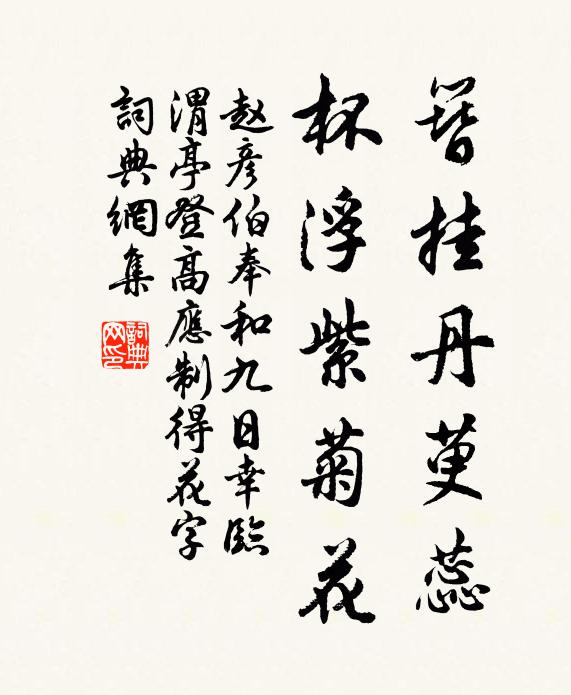 簪挂丹萸蕊
杯浮紫菊花
赵彦伯奉和九日幸臨
渭亭登高應制得花字
詞典網集
詞典网印